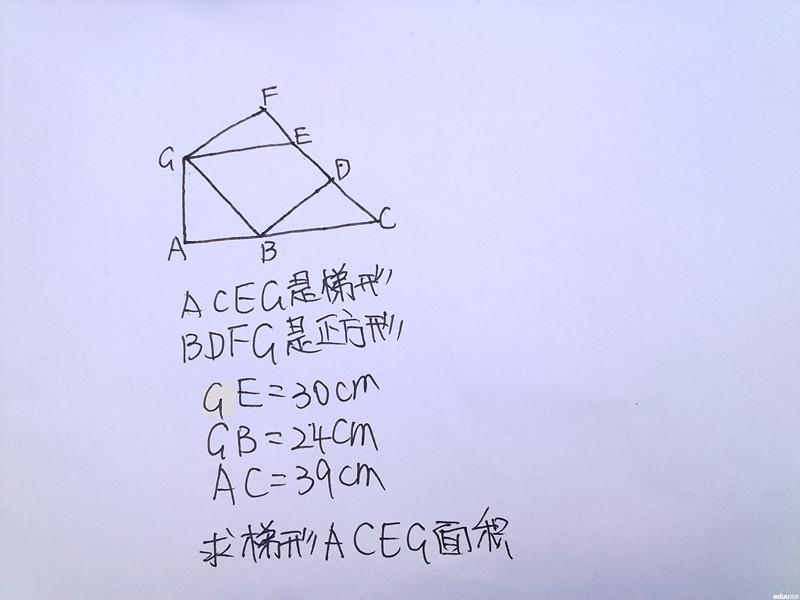 F
G
E
D
A
B
C
ACEG是梯形
BDFG是正方形
GE=30cm
GB=24cm
AC=39cm
求梯形ACEG面积
eduu